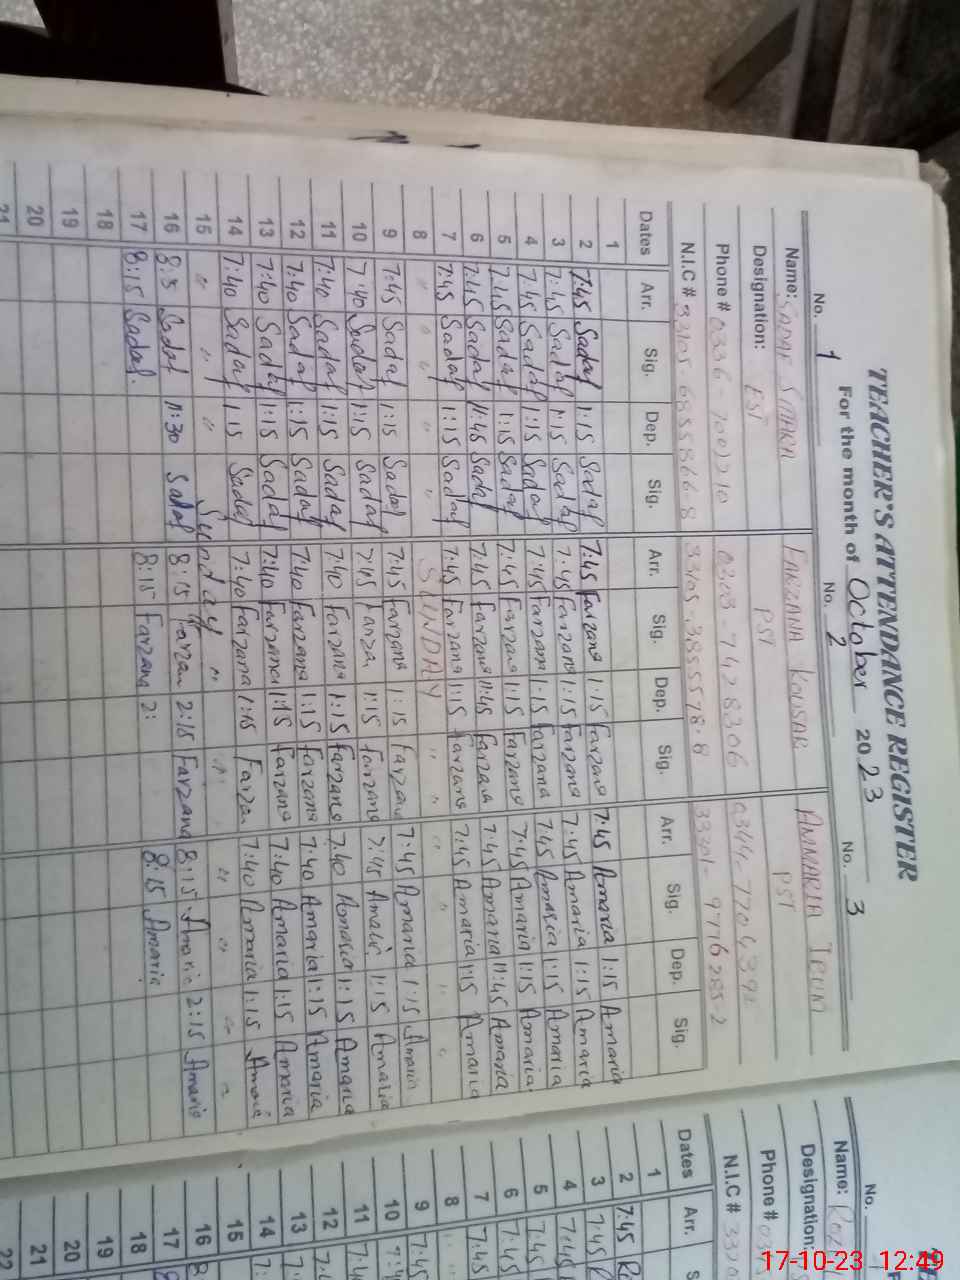 TEACHER'S ATTENDANCE REGISTER
For the month of October 2023
No. 1 No. 2 No. 3
Name: SADAF SITARA FARZANA KOUSAR AMMARIA
Designation: EST PST PST
Phone #
N.I.C #
Dates Arr. Sig. Dep. Sig. Arr. Sig. Dep. Sig. Arr. Sig. Dep. Sig.
1
2 7:45 Sadaf 1:15 Sadaf 7:45 Farzana 1:15 Farzana 7:45 Amaria 1:15 Amaria
3 7:45 Sadaf 1:15 Sadaf 7:45 Farzana 1:15 Farzana 7:45 Amaria 1:15 Amaria
4 7:45 Sadaf 1:15 Sadaf 7:45 Farzana 1:15 Farzana 7:45 Amaria 1:15 Amaria
5 7:45 Sadaf 1:15 Sadaf 7:45 Farzana 1:15 Farzana 7:45 Amaria 1:15 Amaria
6 7:45 Sadaf 11:45 Sadaf 7:45 Farzana 11:45 Farzana 7:45 Amaria 11:45 Amaria
7 7:45 Sadaf 1:15 Sadaf 7:45 Farzana 1:15 Farzana 7:45 Amaria 1:15 Amaria
8 " " " " SUNDAY " " " " " "
9 7:45 Sadaf 1:15 Sadaf 7:45 Farzana 1:15 Farzana 7:45 Amaria 1:15 Amaria
10 7:40 Sadaf 1:15 Sadaf 7:45 Farza 1:15 Farzana 7:45 Amaria 1:15 Amaria
11 7:40 Sadaf 1:15 Sadaf 7:40 Farzana 1:15 Farzana 7:40 Amaria 1:15 Amaria
12 7:40 Sadaf 1:15 Sadaf 7:40 Farzana 1:15 Farzana 7:40 Amaria 1:15 Amaria
13 7:40 Sadaf 1:15 Sadaf 7:40 Farzana 1:15 Farzana 7:40 Amaria 1:15 Amaria
14 7:40 Sadaf 1:15 Sadaf 7:40 Farzana 1:15 Farzan 7:40 Amaria 1:15 Amaria
15 " " " Sunday " " " " " "
16 Sadaf 11:30 Sadaf 8:15 Farzan 2:15 Farzana 8:15 Amaria 2:15 Amaria
17 8:15 Sadaf. 8:15 Farzana 2: 8:15 Amaria
18
19
20
21
No.
Name:
Designation:
Phone #
N.I.C #
Dates Arr.
1
2 7:45
3 7:45
4 7:45
5 7:45
6 7:45
7 7:45
8
9 7:45
10
11
12
13
14
15
16
17
18
19
20
21
22
17-10-23 12:49